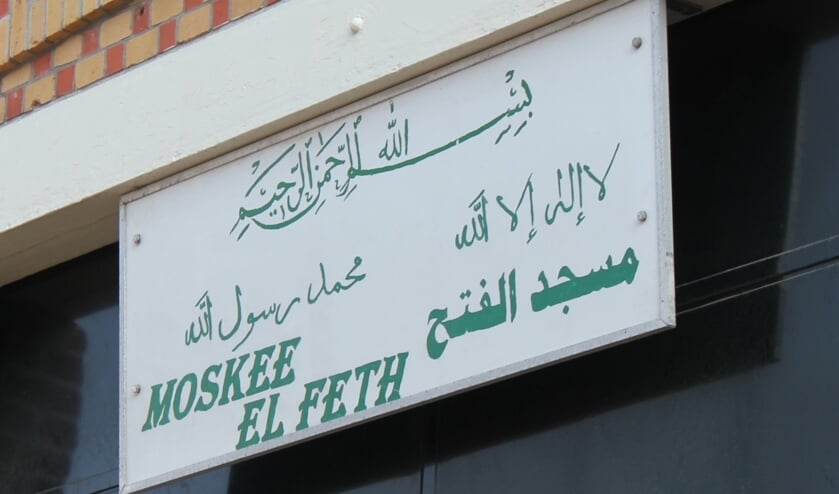 بسم الله الرحمن الرحيم
لا إله إلا الله
محمد رسول الله
مسجد الفتح
MOSKEE
EL FETH